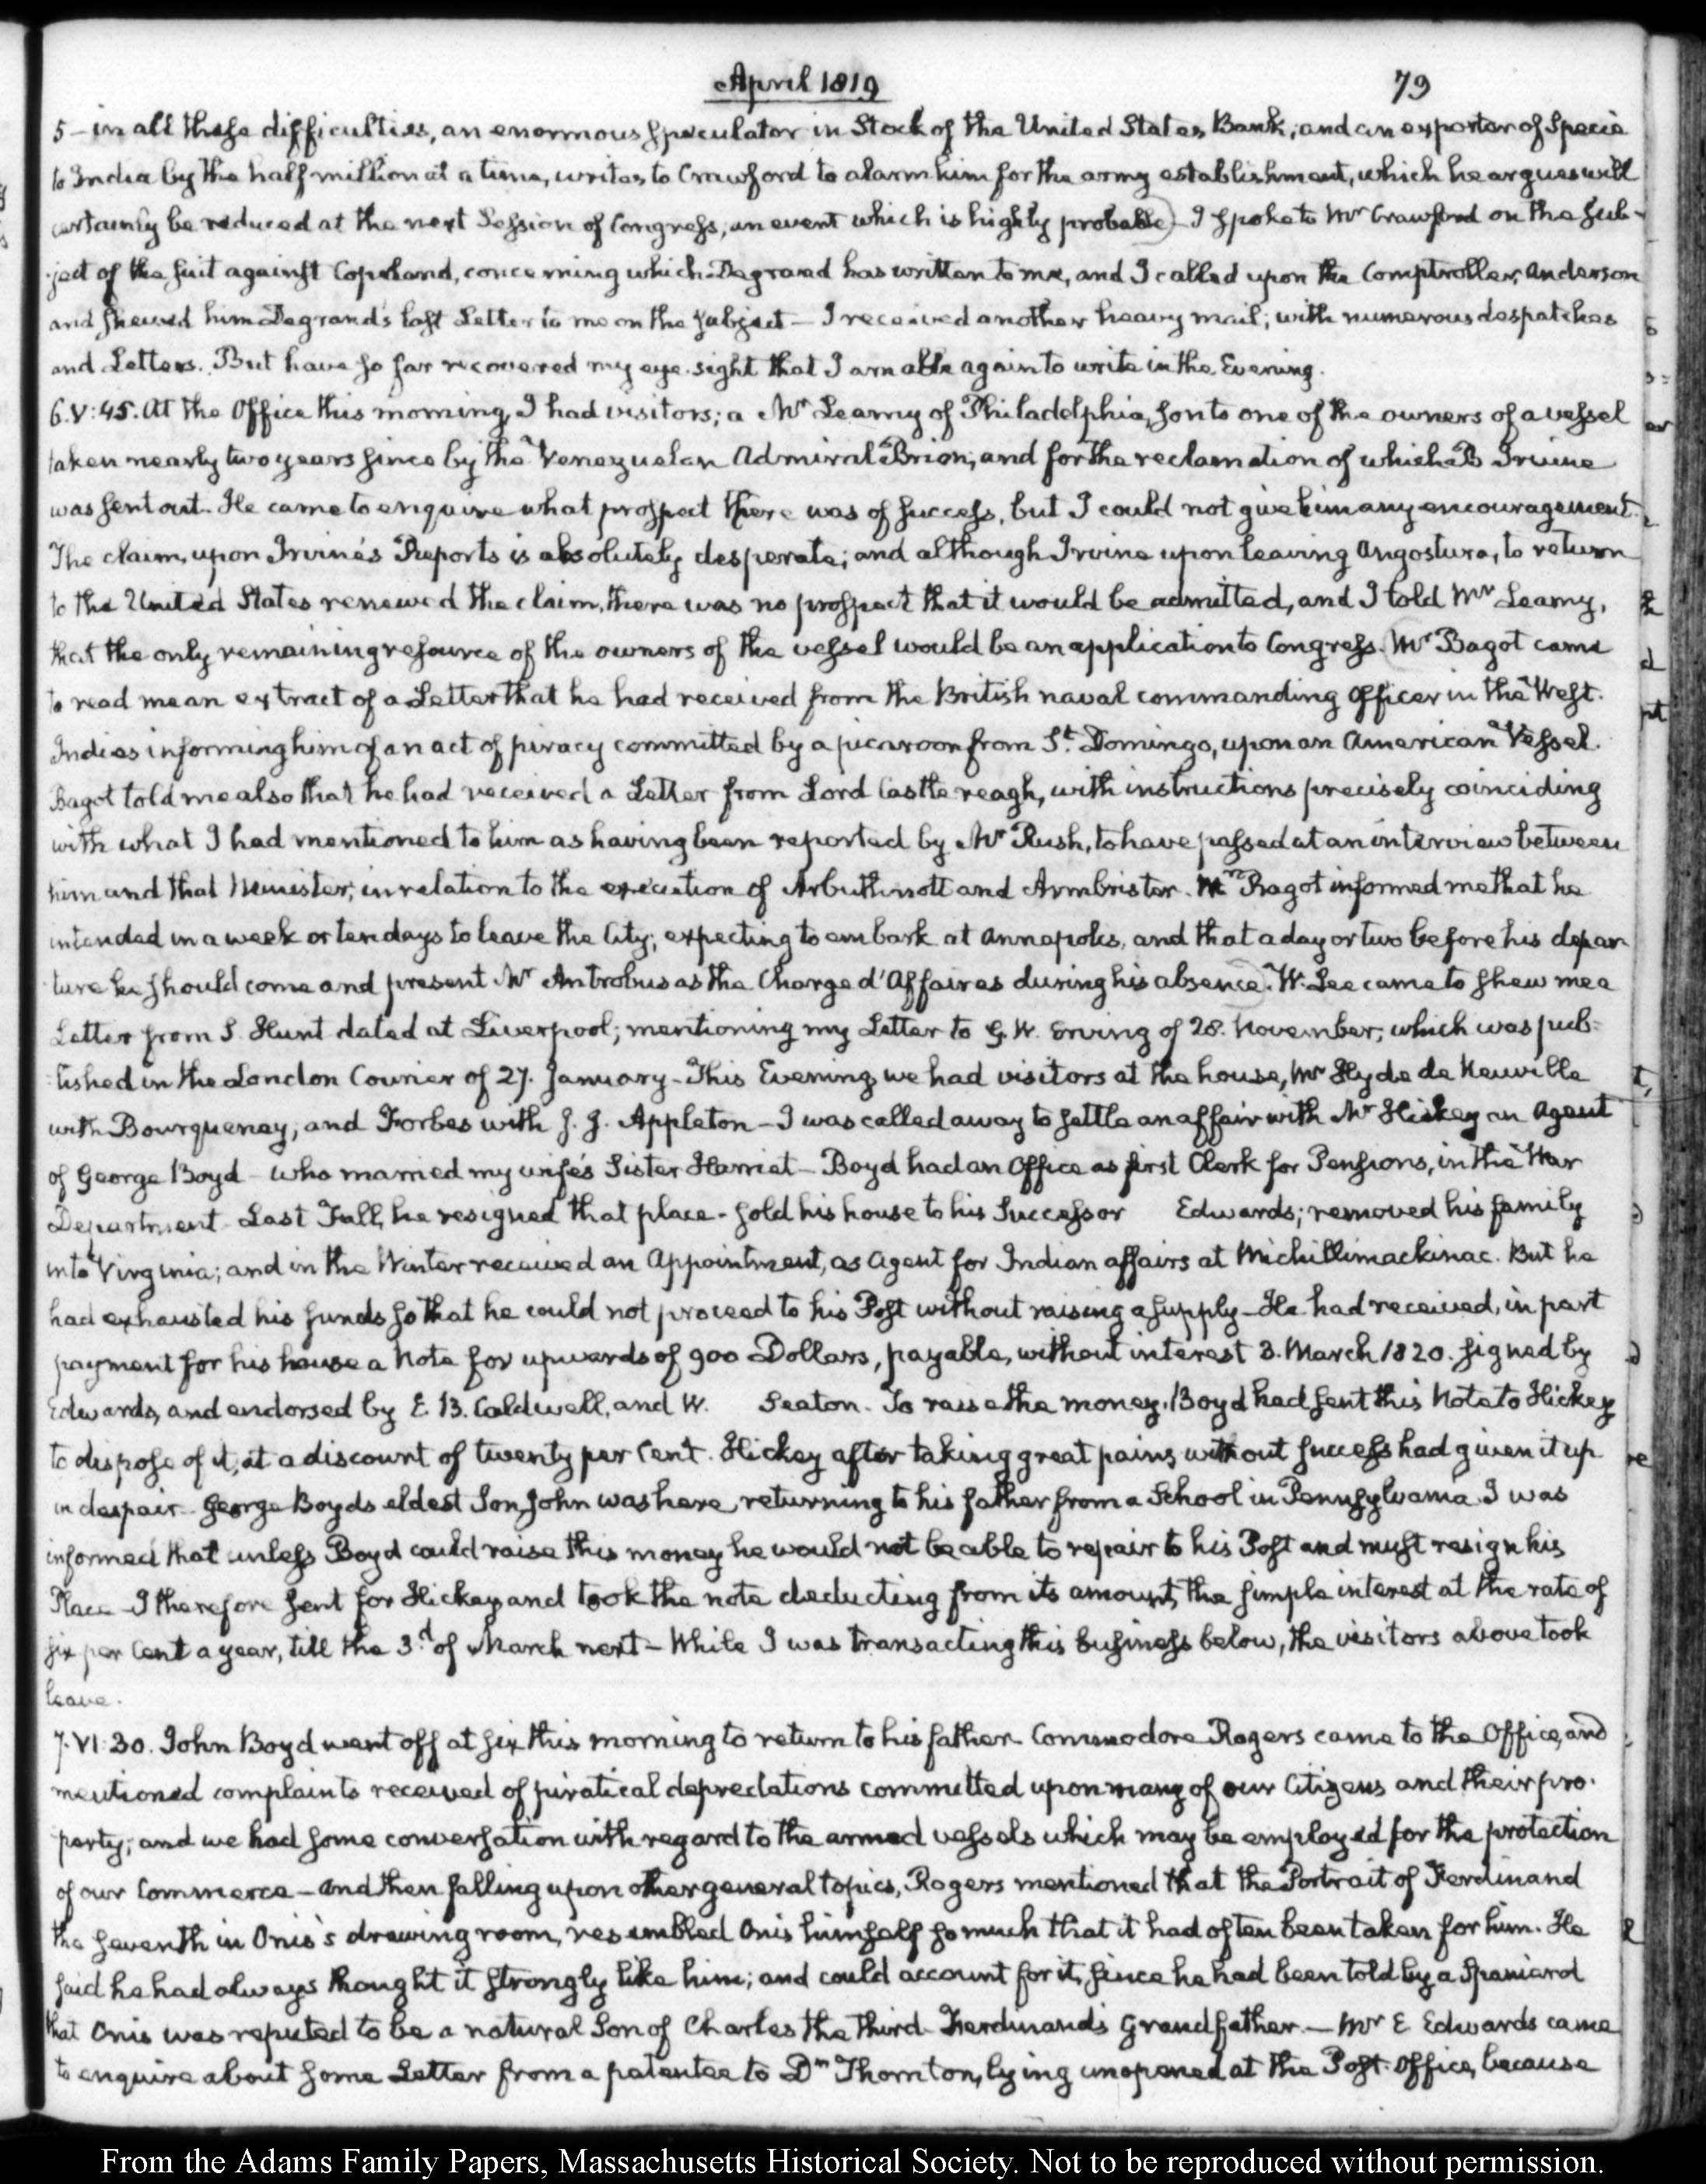 April 1819
79
5 - in all these difficulties, an enormous Speculator in Stock of the United States Bank, and an exporter of Specie
to India by the half million at a time, writes to Crawford to alarm him for the army establishment, which he argues will
certainly be reduced at the next Session of Congress, an event which is highly probable) - I spoke to Mr Crawford on the sub-
ject of the suit against Copeland, concerning which Degrand has written to me, and I called upon the Comptroller, Anderson
and shewed him Degrand's last Letter to me on the subject - I received another heavy mail; with numerous despatches
and Letters. But have so far recovered my eye-sight that I am able again to write in the Evening.
6. V: 45. At the Office this morning, I had visitors; a Mr Leamy of Philadelphia, son to one of the owners of a vessel
taken nearly two years since by the Venezuelan Admiral Brion, and for the reclamation of which B Irvine
was sent out. He came to enquire what prospect there was of success, but I could not give him any encouragement.
The claim, upon Irvine's Reports is absolutely desperate; and although Irvine upon leaving Angostura, to return
to the United States renewed the claim, there was no prospect that it would be admitted, and I told Mr Leamy,
that the only remaining resource of the owners of the vessel would be an application to Congress. (Mr Bagot came
to read me an extract of a Letter that he had received from the British naval commanding Officer in the West-
Indies informing him of an act of piracy committed by a picaroon from St. Domingo, upon an American Vessel.
Bagot told me also that he had received a Letter from Lord Castlereagh, with instructions precisely coinciding
with what I had mentioned to him as having been reported by Mr Rush, to have passed at an interview between
him and that Minister, in relation to the execution of Arbuthnott and Armbrister. Mr Bagot informed me that he
intended in a week or ten days to leave the City; expecting to embark at Annapolis, and that a day or two before his depar-
ture he should come and present Mr Antrobus as the Charge d'Affaires during his absence). W. Lee came to shew me a
Letter from S. Hunt dated at Liverpool; mentioning my Letter to G. W. Erving of 28. November, which was pub-
lished in the London Courier of 27. January - This Evening we had visitors at the house, Mr Hyde de Neuville
with Bourqueney, and Forbes with J. J. Appleton - I was called away to settle an affair with Mr Hickey an Agent
of George Boyd - who married my wife's Sister Harriet - Boyd had an Office as first Clerk for Pensions, in the War
Department - Last Fall, he resigned that place - sold his house to his Successor Edwards; removed his family
into Virginia; and in the Winter received an Appointment, as Agent for Indian affairs at Michillimackinac. But he
had exhausted his funds so that he could not proceed to his Post without raising a supply - He had received, in part
payment for his house a Note for upwards of 900 Dollars, payable, without interest 3. March 1820. signed by
Edwards, and endorsed by E. B. Caldwell, and W. Seaton. To raise the money, Boyd had sent this Note to Hickey
to dispose of it, at a discount of twenty per Cent. Hickey after taking great pains without success had given it up
in despair - George Boyd's eldest Son, John was here, returning to his father from a School in Pennsylvania. I was
informed that unless Boyd could raise this money he would not be able to repair to his Post and must resign his
Place - I therefore sent for Hickey and took the note deducting from its amount, the simple interest at the rate of
six per Cent a year, till the 3.d of March next - While I was transacting this business below, the visitors above took
leave.
7. VI: 30. John Boyd went off at six this morning to return to his father. Commodore Rogers came to the Office, and
mentioned complaints received of piratical depredations committed upon many of our Citizens and their pro-
perty; and we had some conversation with regard to the armed vessels which may be employed for the protection
of our Commerce - And then falling upon other general topics, Rogers mentioned that the Portrait of Ferdinand
the seventh in Onis's drawing room, resembled Onis himself so much that it had often been taken for him. He
said he had always thought it strongly like him; and could account for it, since he had been told by a Spaniard
that Onis was reputed to be a natural Son of Charles the third - Ferdinand's Grandfather - Mr E Edwards came
to enquire about some Letter from a patentee to Dr Thornton, lying unopened at the Post-Office, because
From the Adams Family Papers, Massachusetts Historical Society. Not to be reproduced without permission.